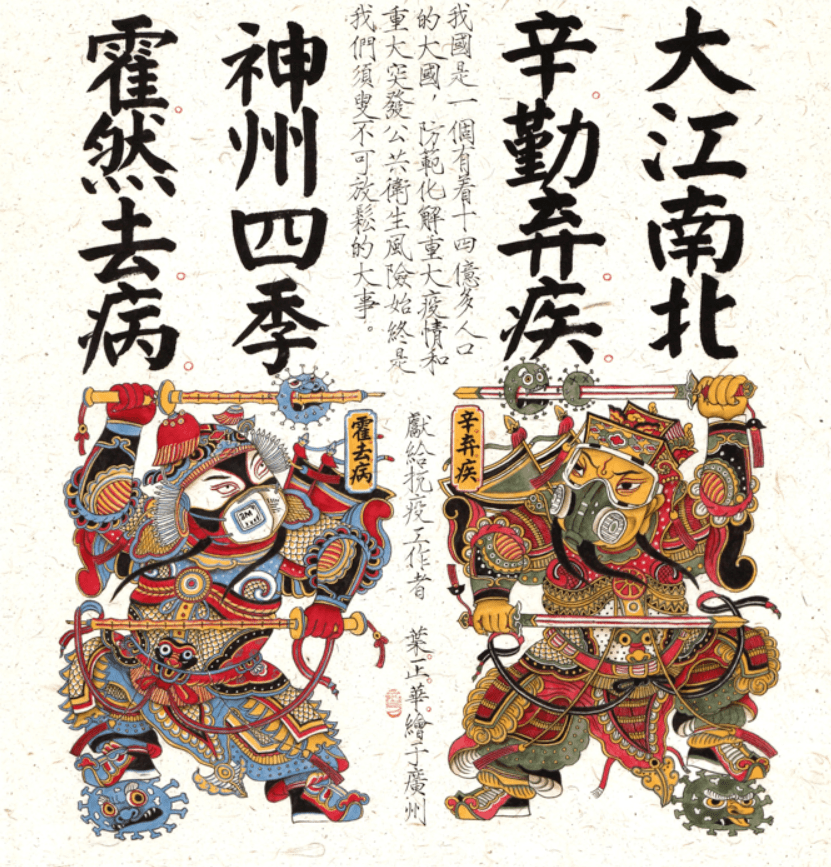 大江南北
辛勤弃疾
我國是一個有着十四億多人口
的大國，防範化解重大疫情和
重大突發公共衛生風險始終是
我們須臾不可放鬆的大事。
神州四季
霍然去病
辛弃疾
獻給抗疫工作者
葉正華繪于廣州
霍去病